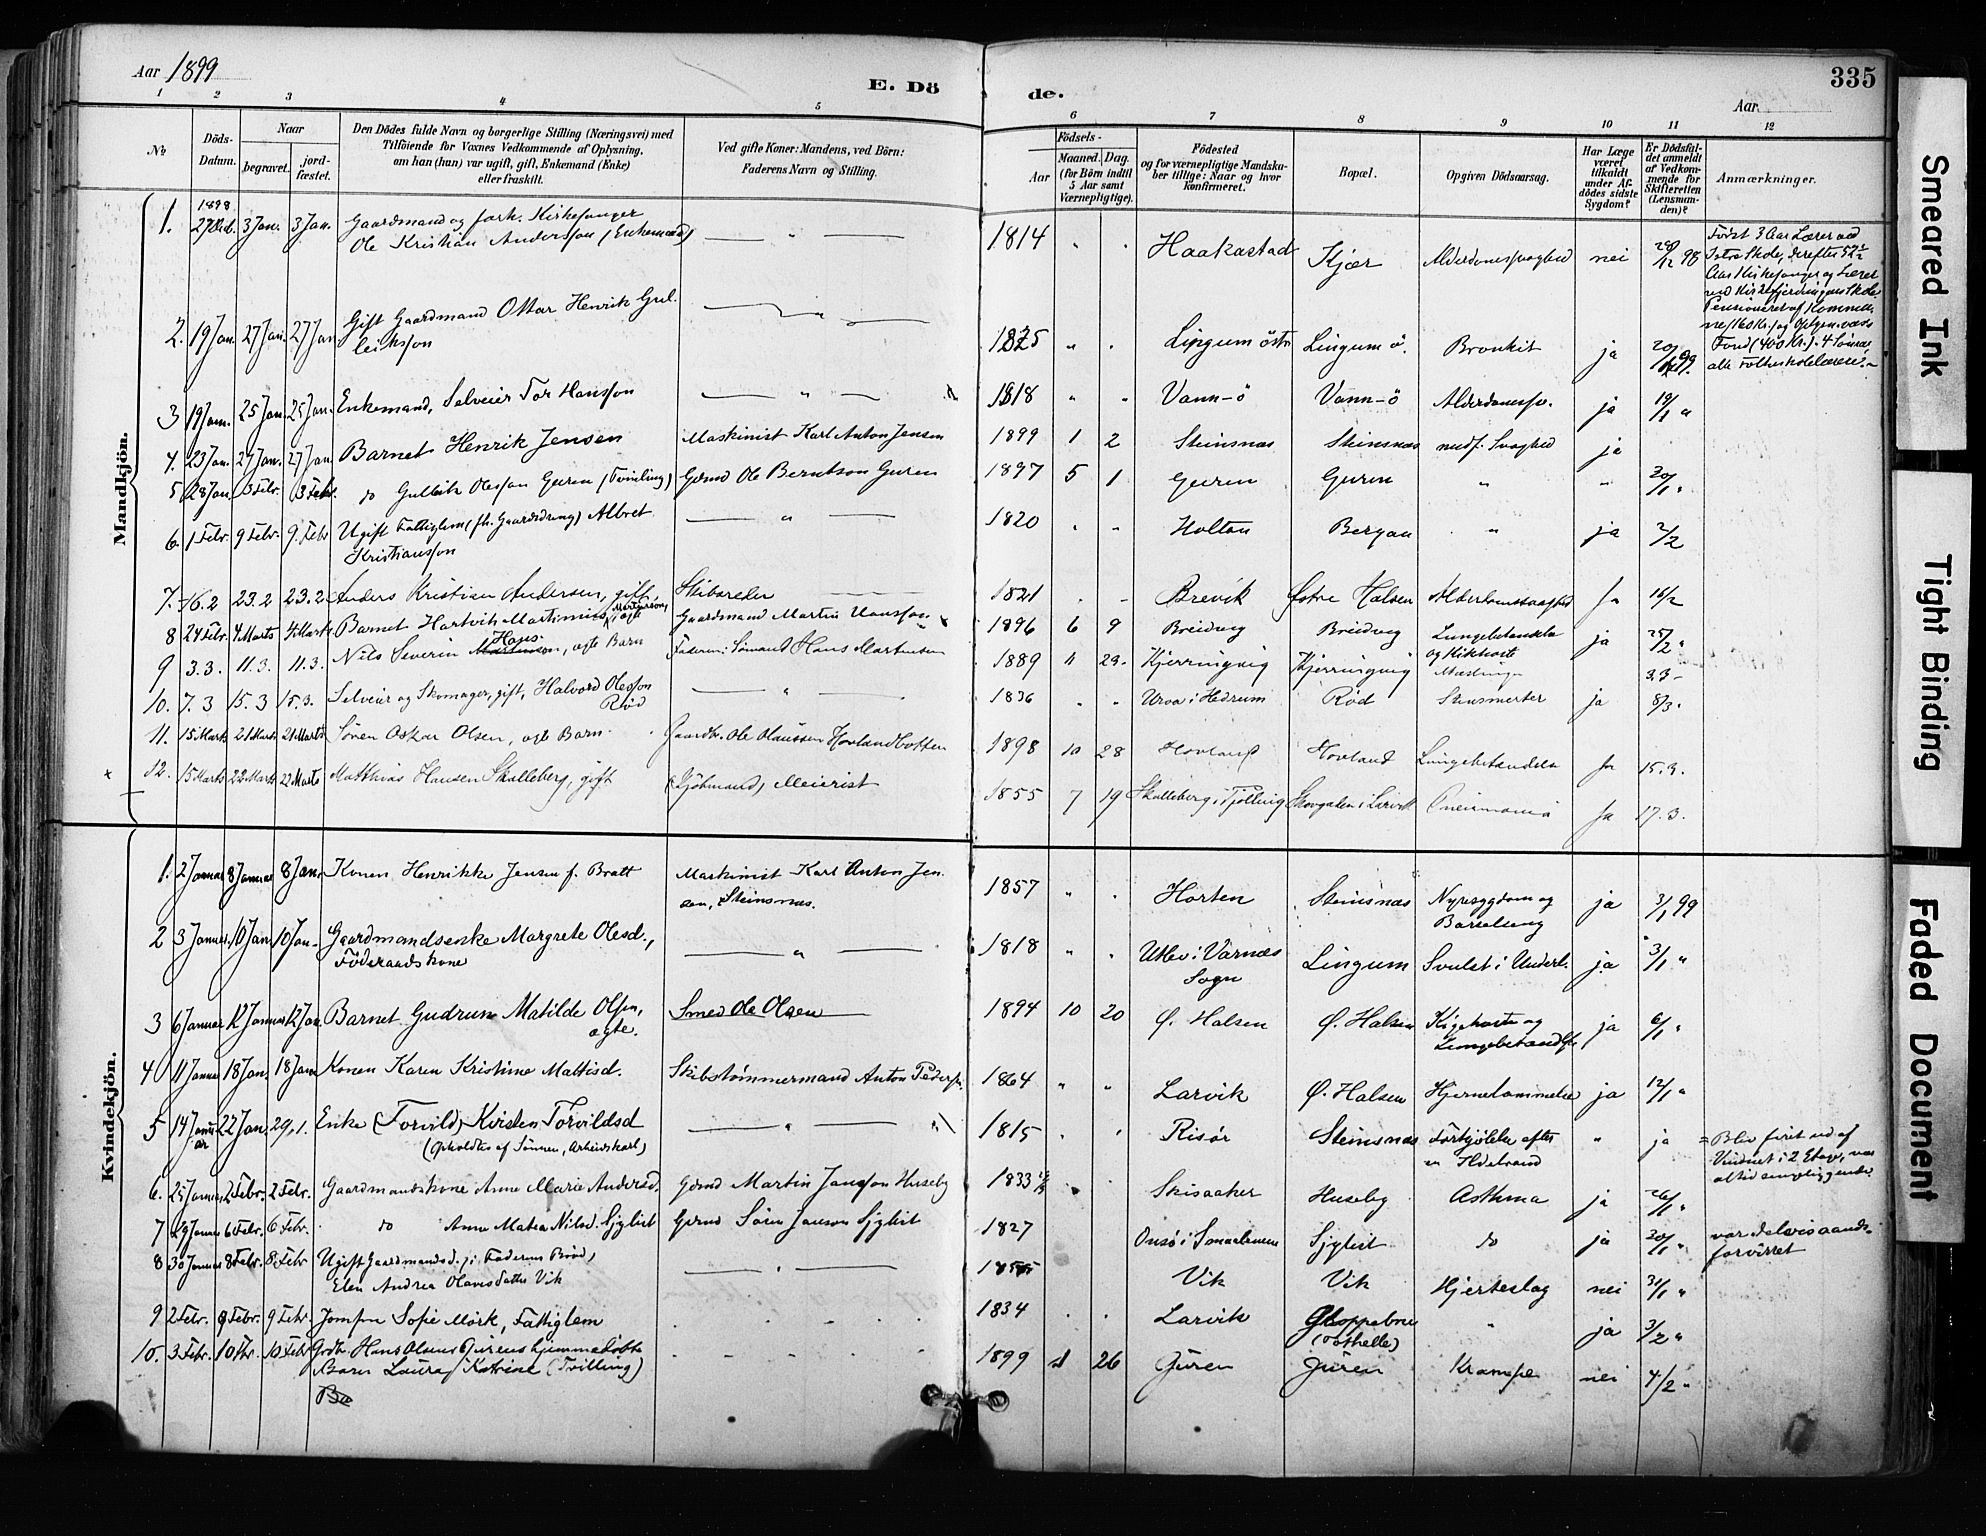 Aar 1899
E. Dö
de.
335
Aar
1 2 3 4 5 6 7 8 9 10 11 12
No
Döds-Datum.
Naar
begravet.
jord-fæstet.
Den Dödes fulde Navn og borgerlige Stilling (Næringsvei) med
Tilföiende for Voxnes Vedkommende af Oplysning,
om han (hun) var ugift, gift, Enkemand (Enke)
eller fraskilt.
Ved gifte Koner: Mandens, ved Börn:
Faderens Navn og Stilling.
Födsels-
Aar
Maaned. Dag.
(for Börn indtil
5 Aar samt
Værnepligtige).
Födested
og for værnepligtige Mandska-
ber tillige: Naar og hvor
konfirmeret.
Bopæl.
Opgiven Dödsaarsag.
Har Læge
været
tilkaldt
under Af-
dödes sidste
Sygdom?
Er Dödsfal-
det anmeldt
af Vedkom-
mende for
Skifteretten
(Lensman-
den)?
Anmærkninger.
Mandkjön.
1. 1898 27 Dcb. 3 Jan. 3 Jan. Gaardmand og forh. Kirkesanger
Ole Kristian Anderssøn (Enkemand) — " — 1814 " " Haakastad Kjær Alderdomssvaghed nei 28/12 98
Födst 3 Aar Lærer ved
Istre Skole, derefter 52½
Aar Kirkesanger og Lærer
ved Kirkefjerdingens Skole.
2. 19 Jan. 27 Jan. 27 Jan Gift Gaardmand Ottar Henrik Gul-
leiksson — " — 1825 " " Lingum östr Lingum ö. Bronkit ja 20/1 99.
3 19 Jan. 25 Jan. 25 Jan. Enkemand, Selveier Tor Hansson — " — 1818 " " Vann-ö Vann-ö Alderdomssv. ja 19/1 "
4. 23 Jan. 27 Jan. 27 Jan. Barnet Henrik Jensen Maskinist Karl Anton Jensen 1899 1 2 Steinsnæs Steinsnæs medf. Svaghed ja
5 28 Jan. 3 Febr. 3 Febr. do Gullik Olesson Guren (Tvilling) Grmd Ole Berntson Guren 1897 5 1 Guren Guren " " 30/1 "
6. 1 Febr. 9 Febr. 9. Febr Ugift Fattiglem (fh. Gaardsdreng) Albret
Kristiansson — " — 1820 " " Holtan Bergan " ja 2/2
7. 16.2 23.2 23.2 Anders Kristian Andersen, gift, Skibsreder — 1821 " " Brevik Østre Halsen Alderdomssvaghed Ja 16/2
8 24 Febr. 4 Marts 4 Marts Barnet Hartvik Martinius Martinsøn, ægte Gaardmand Martin Hansson 1896 6 9 Breidvig Breidvig Lungebetændelse
og Kikhoste ja 25/2 "
9 3.3. 11.3. 11.3. Nils Severin Hans. Martinson, ægte Barn Faderen: Sømand Hans Martinsen 1889 11 29. Kjerringvig Kjerringvig Mæslinge 3.3 –
10. 7.3 15.3 15.3. Selveier og Skomager, gift, Halvord Olesson
Rød — " — 1836 " " Urvæ i Hedrum Rød Stensmerter ja 8/3 "
11. 15 Marts 21 Marts 21 Marts Søren Oskar Olsen, ægte Barn Gaardbr. Ole Olaussen Hovland 1898 10 28 Hovland Hovland Lungebetændelse Ja 15.3.
x 12. 15 Marts 22 Marts 22 Marts Matthias Hansen Skalleberg, gift (Sjömand) Meierist 1855 7 19 Skalleberg i Tjølling Skovgaden i Larvik Pneumonia Ja 17.3.
Kvindekjön.
1. 2 Januar 8 Januar 8 Jan. Konen Henrikke Jensen f. Bratt Maskinist Karl Anton Jen-
sen, Steinsnæs. 1857 " " Horten Steinsnæs Nyresygdom og
Barselseng ja 3/1 99
2 3 Januar 10 Jan. 10 Jan. Gaardmandsenke Margrete Olesd.,
Føderaadskone — " — 1818 " " Utlev i Varnæs
Sogn Lingum Svulst i Underl. ja 3/1 "
3 6 Januar 12 Januar 12 Jan Barnet Gudrun Matilde Olsen,
ægte. Smed Ole Olsen 1894 10 20 Ø. Halsen Ø. Halsen Kighoste og
Lungebetændelse ja 6/1 "
4 11 Januar 18 Jan. 18 Jan Konen Karen Kristine Mattisd. Skibstømmermand Anton Peders. 1864 " " Larvik Ø. Halsen Hjernelammelse ja 12/1 "
5 14 Januar 22 Jan. 29.1. Enke (Torvild) Kirsten Torvildsd
(Opholdtes af Sønnen, Arbeidskarl) — " — 1815 " " Risør Steinsnæs Forkjølelse efter
en Ildebrand " ja
Blev firet ud af
Vinduet i 2 Etage, var
altid sengeliggende.
6. 25 Januar 2 Febr. 2 Febr. Gaardmandskone Anne Marie Andersd. Grmd Martin Jansson Huseby 1833 Skisaaker Huseby Asthma ja 26/1 "
7 29 Januar 6 Febr. 6 Febr. do Anne Matea Nilsd. Sjglist Grmd Søren Janson Sjglist 1827 Onsø i Smaalenene Sjglist do ja 30/1 " var delvis aands-
forvirret
8 30 Januar 8 Febr. 8 Febr Ugift Gaardmandsd. i Faderens Brød,
Elen Andrea Olavisdatter Vik — " — 1855 Vik Vik Hjerteslag nei 31/1 "
9 2 Febr. 9 Febr. 9 Febr Jomfru Sofie Mörk, Fattiglem 1834 " " Larvik Gloppebru
(Tothelle) " ja 3/2 "
10. 3 Febr. 10 Fbr. 10 Febr Grdbr. Hans Olsens Gurens hjemmedöbte
Barn Laura Katrine (Tvilling) 1899 1 26 Guren Guren Krampe nei 4/2 "
Ba
Smeared Ink
Tight Binding
Faded Document